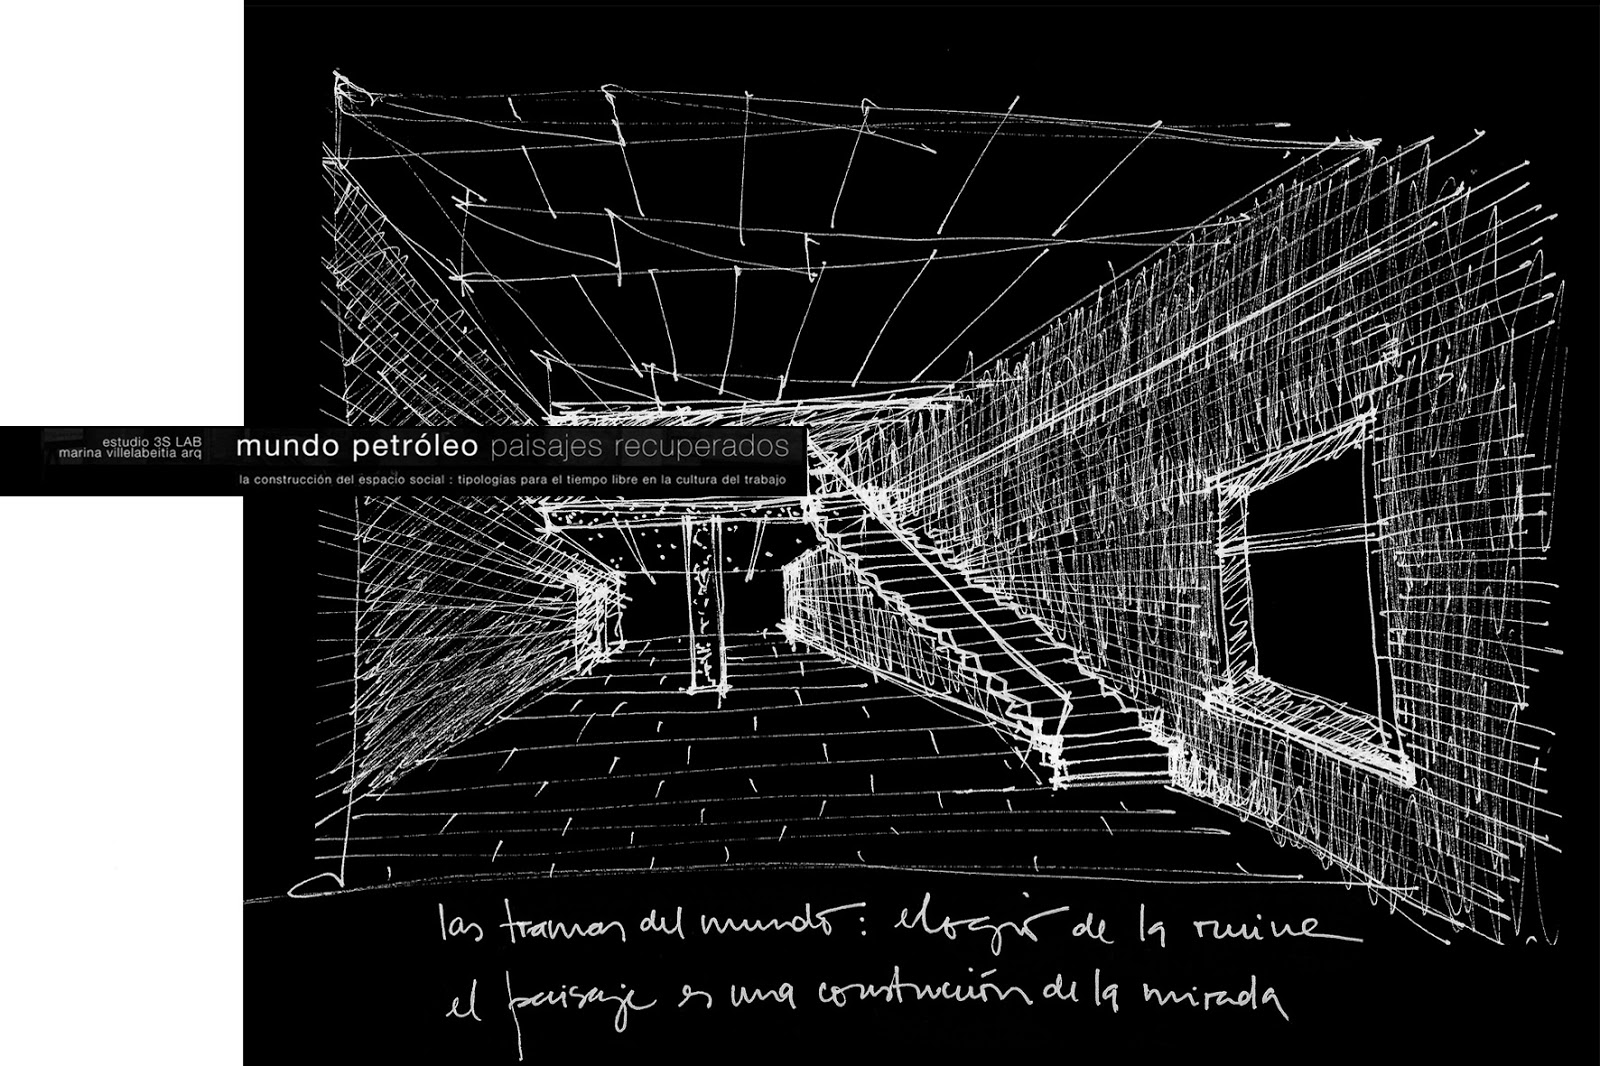 estudio 3S LAB
marina villelabeitia arq
mundo petróleo paisajes recuperados
la construcción del espacio social : tipologías para el tiempo libre en la cultura del trabajo
las tramas del mundo : elogio de la ruina
el paisaje es una construcción de la mirada